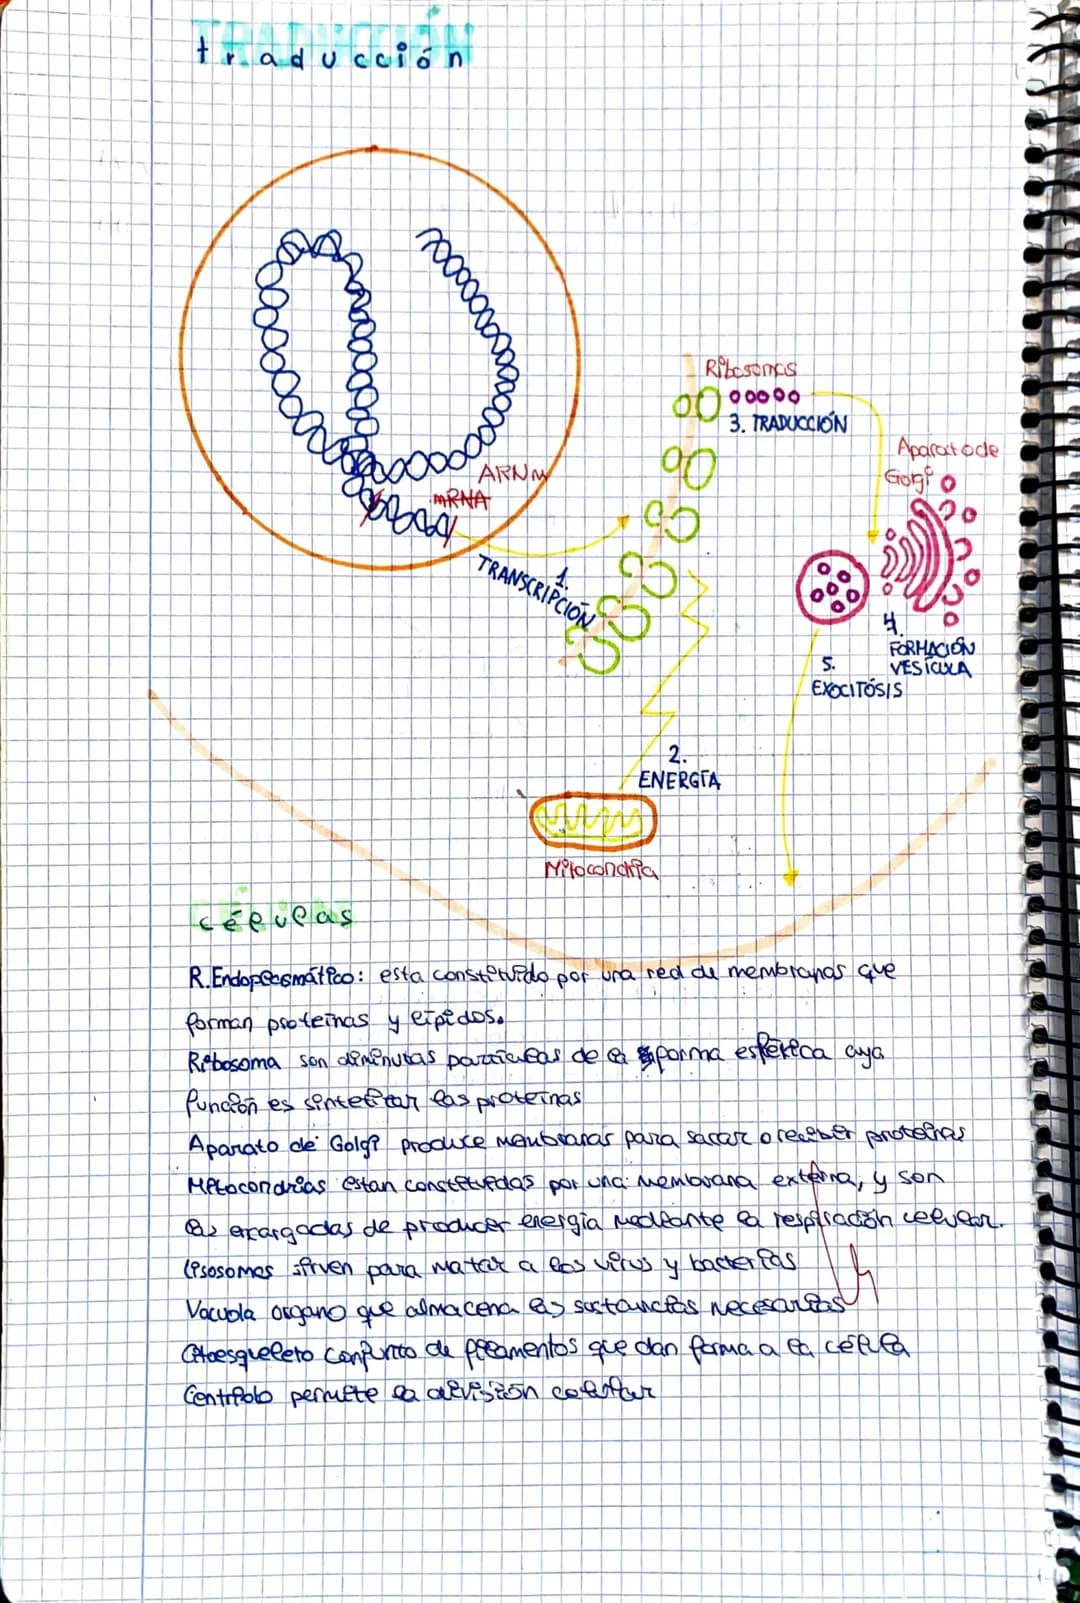 TRADUCCIÓN
traducción
Ribosomas
3. TRADUCCIÓN
Aparato de
Golgi
ARNm
mRNA
1.
TRANSCRIPCIÓN
4.
FORMACIÓN
VESÍCULA
5.
EXOCITÓSIS
2.
ENERGÍA
Mitocondria
células
R.Endoplasmático: esta constituido por una red de membranas que
forman proteínas y lípidos.
Ribosoma son diminutas partículas de la forma esférica cuya
función es sintetizar las proteínas
Aparato de Golgi produce membranas para sacar o recibir proteínas
Mitocondrias estan constituidas por una membrana externa, y son
las encargadas de producer energía mediante la respiración celular.
Lisosomas sirven para matar a los virus y bacterias
Vacuola organo que almacena las sustancias necesarias
Citoesqueleto conjunto de filamentos que dan forma a la célula
Centriolo permite la división celular